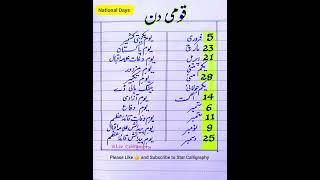 National Days
قومی دن
5 فروری یوم یکجہتی کشمیر
23 مارچ یوم پاکستان
21 اپریل یوم وفات علامہ اقبال
یکم مئی یوم مزدور
28 مئی یوم تکبیر
یکم جولائی بینک ہالی ڈے
14 اگست یوم آزادی
6 ستمبر یوم دفاع
11 ستمبر یوم وفات قائد اعظم
9 نومبر یوم پیدائش علامہ اقبال
25 دسمبر یوم پیدائش قائد اعظم
Star Calligraphy
Please Like 👍 and Subscribe to Star Calligraphy